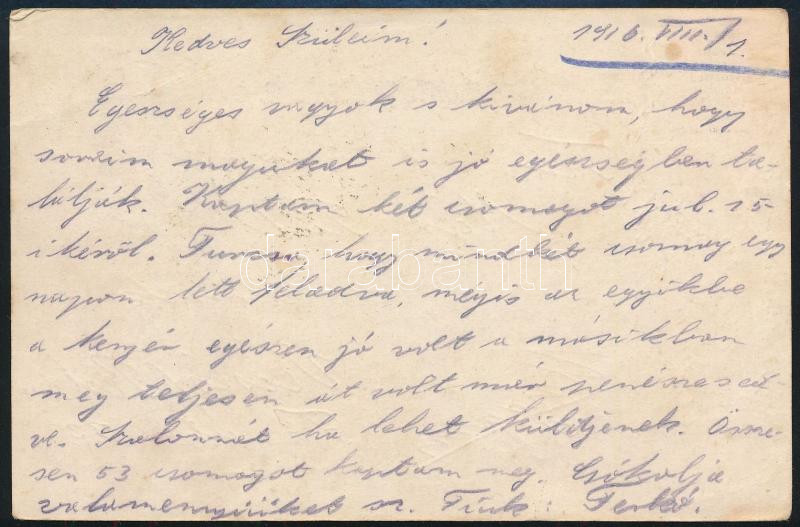 Kedves Szüleim! 1916. VIII. 1.
Egeszséges vagyok s kivánom, hogy
soraim magukat is jó egészségben ta-
lálják. Kaptam két csomagot jul. 15-
ikéről. Furcsa, hogy mindkét csomag egy
napon lett feladva, mégis az egyikbe
a kenyér egészen jó volt a másikban
meg teljesen át volt már penészesed
ve. Szalonnát ha lehet küldjenek. Össze-
sen 53 csomagot kaptam meg. Csókolja
valamennyiüket sz. Fiuk:
darabanth